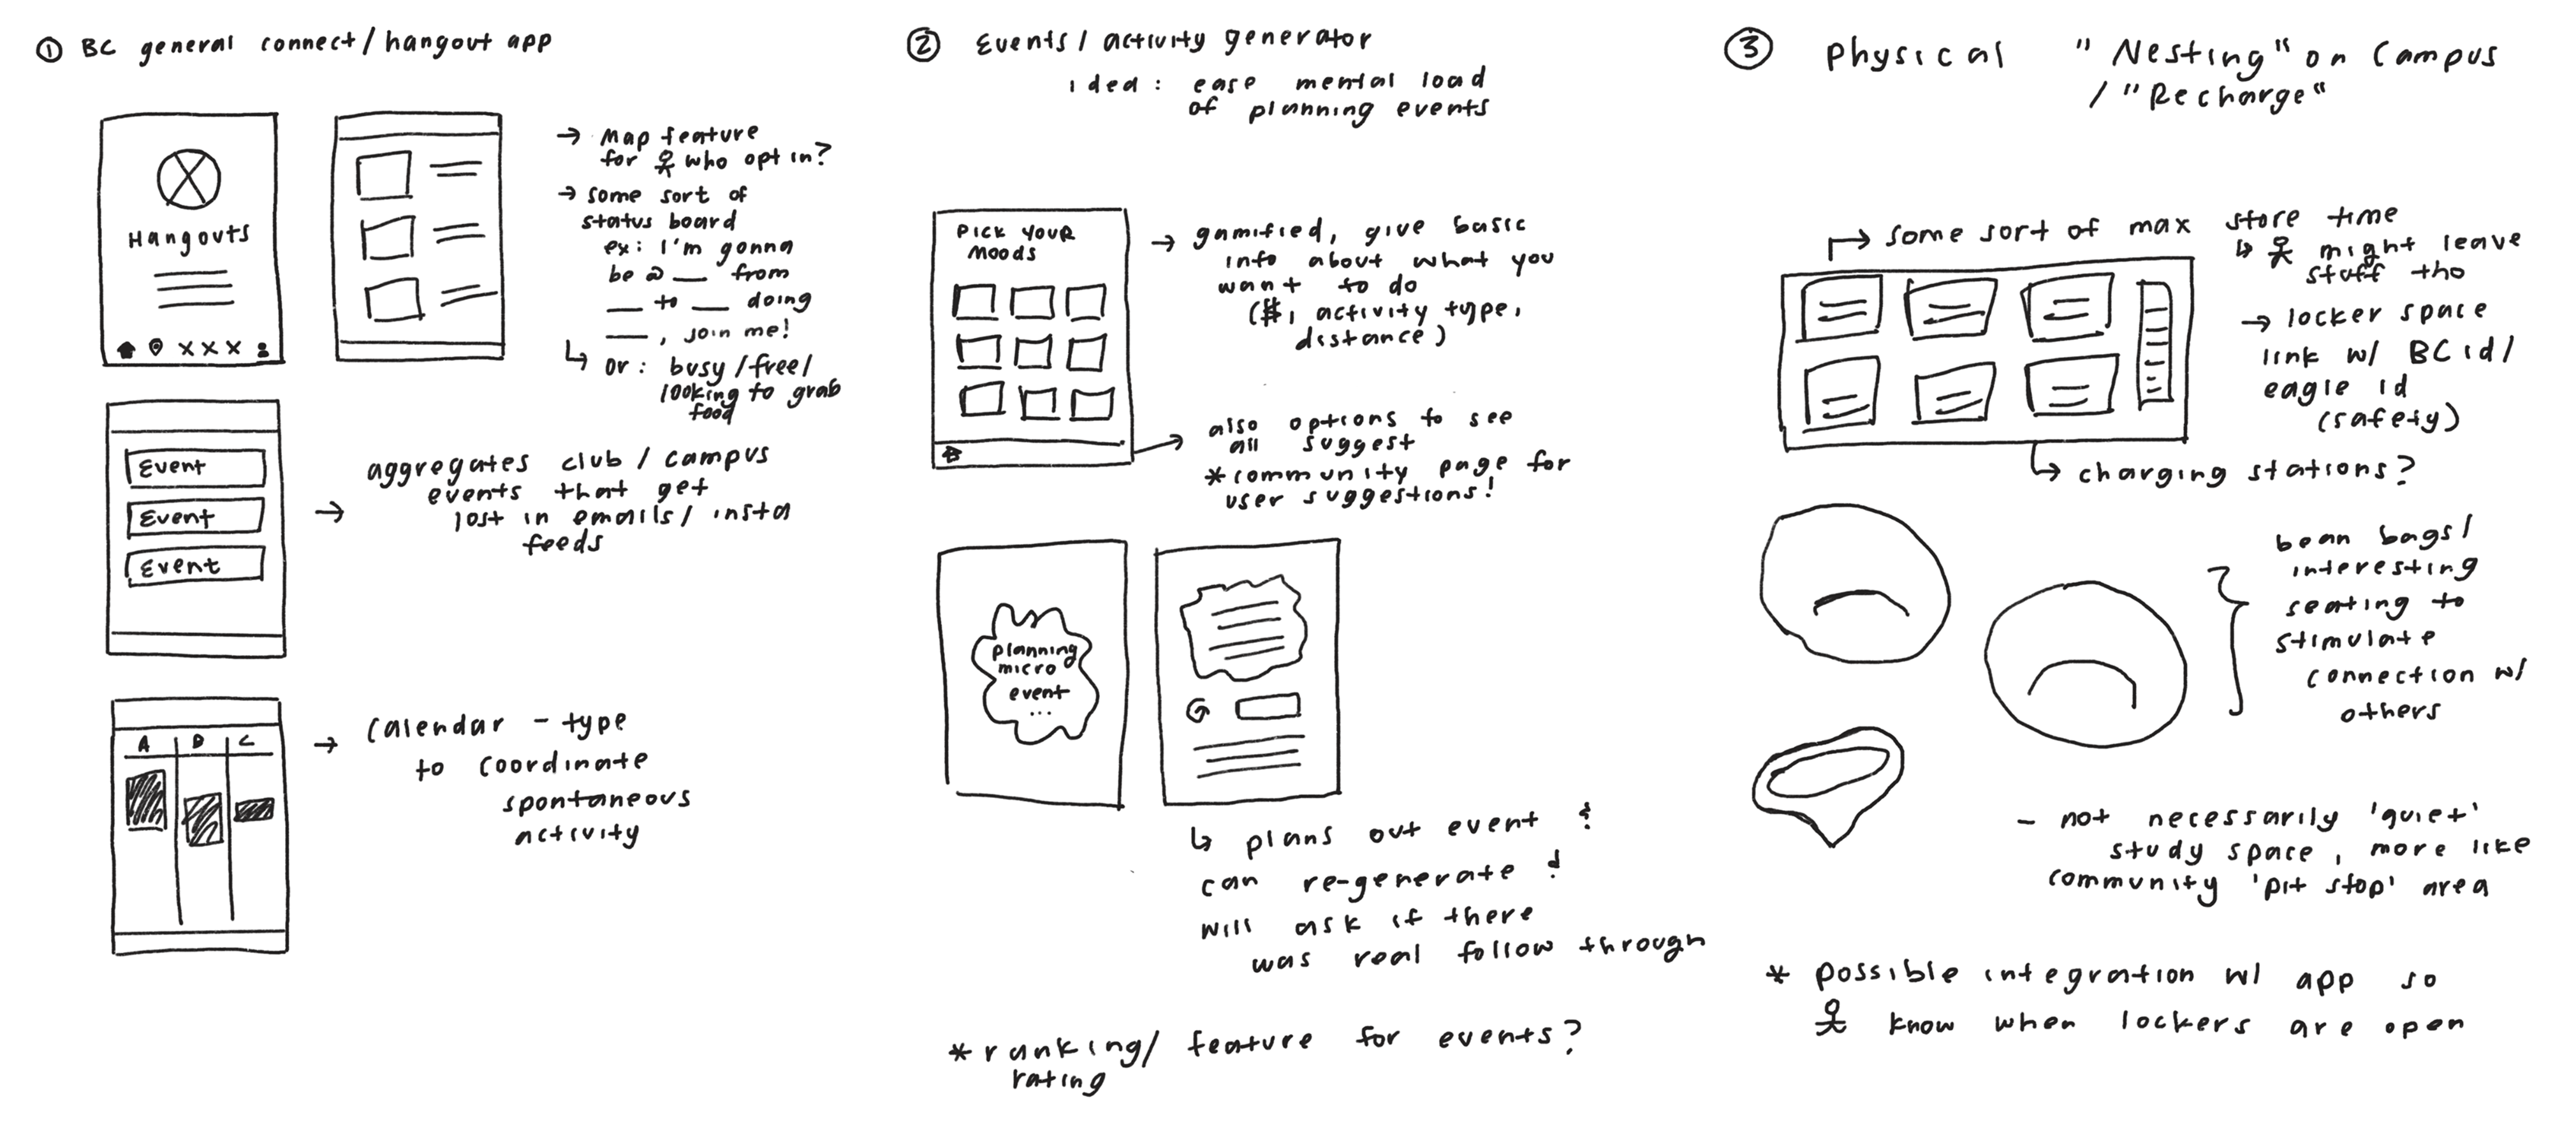 ① BC general connect/hangout app
Hangouts
XXX
→ Map feature
for who opt in?
→ some sort of
status board
ex: I'm gonna
be @ __ from
__ to __ doing
__, join me!
↳ or: busy/free/
looking to grab
food
Event
Event
Event
→ aggregates club/campus
events that get
lost in emails/insta
feeds
A B C
→ calendar-type
to coordinate
spontaneous
activity
② Events/activity generator
idea: ease mental load
of planning events
PICK YOUR
MOODS
→ gamified, give basic
info about what you
want to do
($, activity type,
distance)
also options to see
all suggest
*community page for
user suggestions!
planning
micro
event
...
↳ plans out event &
can re-generate &
will ask if there
was real follow through
*ranking/ feature for events?
rating
③ Physical "Nesting" on Campus
/"Recharge"
↦ some sort of max store time
↳ might leave
stuff tho
→ locker space
link w/ BC id/
eagle id
(safety)
↳ charging stations?
bean bags/
interesting
seating to
stimulate
connection w/
others
- not necessarily 'quiet'
study space, more like
community 'pit stop' area
* possible integration w/ app so
know when lockers are open